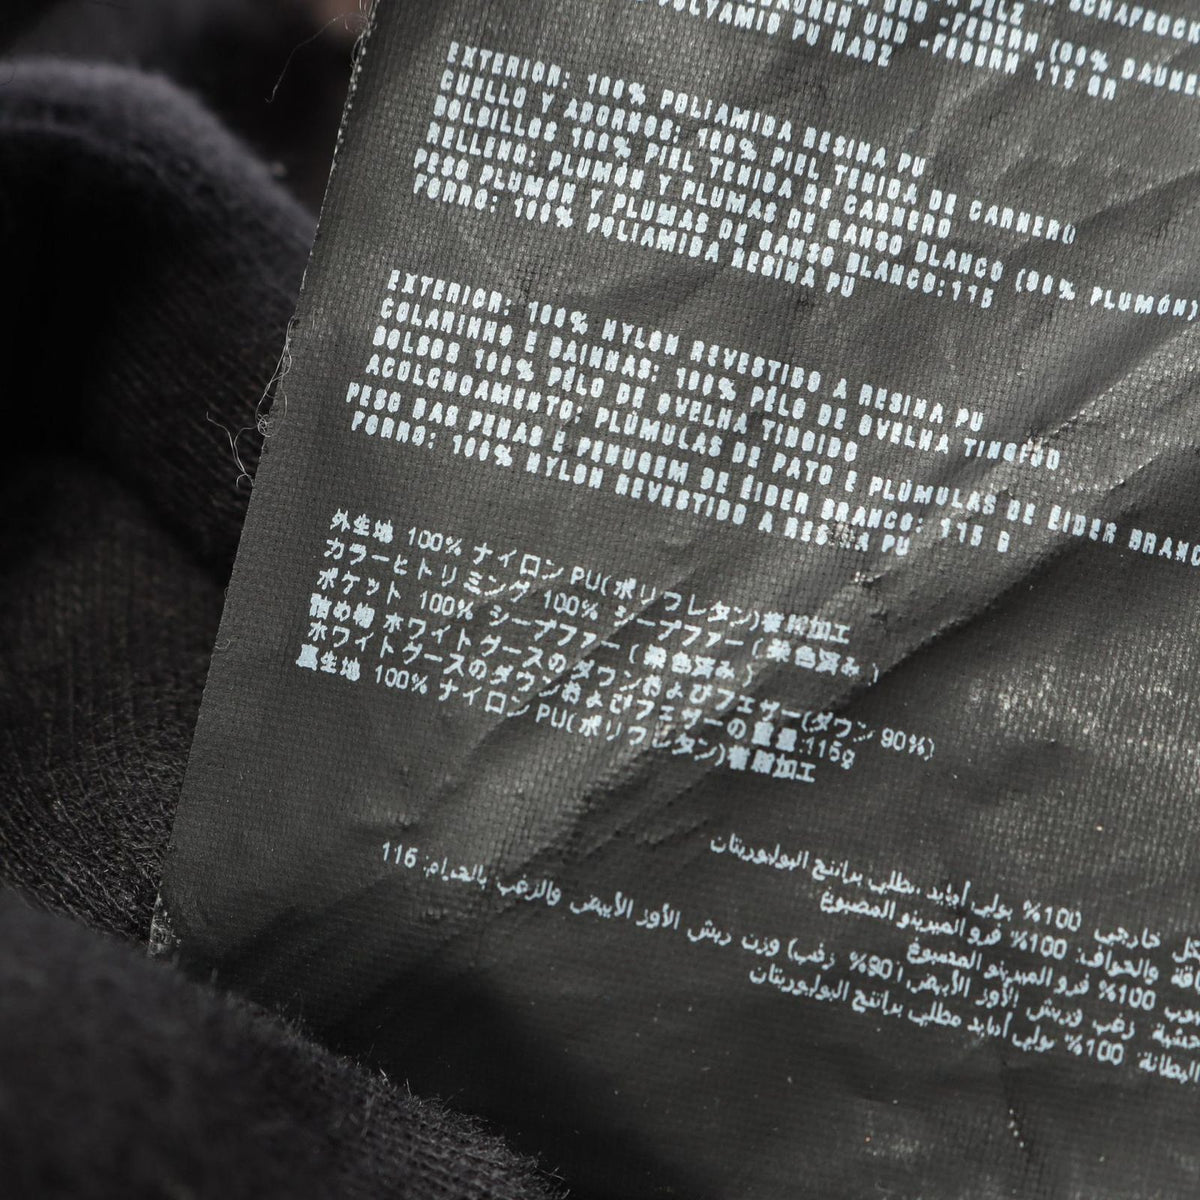 SCHAFBOCK
PELZ
DAUNEN UND -FEDERN (90% DAUNE
UND -FEDERN 115 GR
POLYAMID PU HARZ
EXTERIOR: 100% POLIAMIDA RESINA PU
CUELLO Y ADORNOS: 100% PIEL TENIDA DE CARNERO
BOLSILLOS 100% PIEL TENIDA DE CARNERO
RELLENO: PLUMÓN Y PLUMAS DE GANSO BLANCO (90% PLUMÓN)
PESO PLUMÓN Y PLUMAS DE GANSO BLANCO: 115
FORRO: 100% POLIAMIDA RESINA PU
EXTERIOR: 100% NYLON REVESTIDO A RESINA PU
COLARINHO E BAINHAS: 100% PÉLO DE OVELHA TINGIDO
BOLSOS 100% PÉLO DE OVELHA TINGIDO
ACOLCHOAMENTO: PLÚMULAS DE PATO E PLÚMULAS DE EIDER BRANCO
PESO DAS PENAS E PENUGEM DE EIDER BRANCO: 115 G
FORRO: 100% NYLON REVESTIDO A RESINA PU
外生地 100% ナイロン PU(ポリウレタン)樹脂加工
カラーとトリミング 100% シープファー ( 染色済み )
ポケット 100% シープファー ( 染色済み )
詰め物 ホワイトグースのダウンおよびフェザー(ダウン 90%)
ホワイトグースのダウンおよびフェザーの重量:115g
裏生地 100% ナイロン PU(ポリウレタン)樹脂加工
خارجي 100% بولي أميايد مطلي براتنج البوليوريتان
والحواف: 100% فرو الميرينو المصبوغ
100% فرو الميرينو المصبوغ
زغب وريش الأوز الأبيض (90% زغب) وزن ريش الأوز الأبيض والزغب بالجرام: 115
البطانة: 100% بولي أميايد مطلي براتنج البوليوريتان